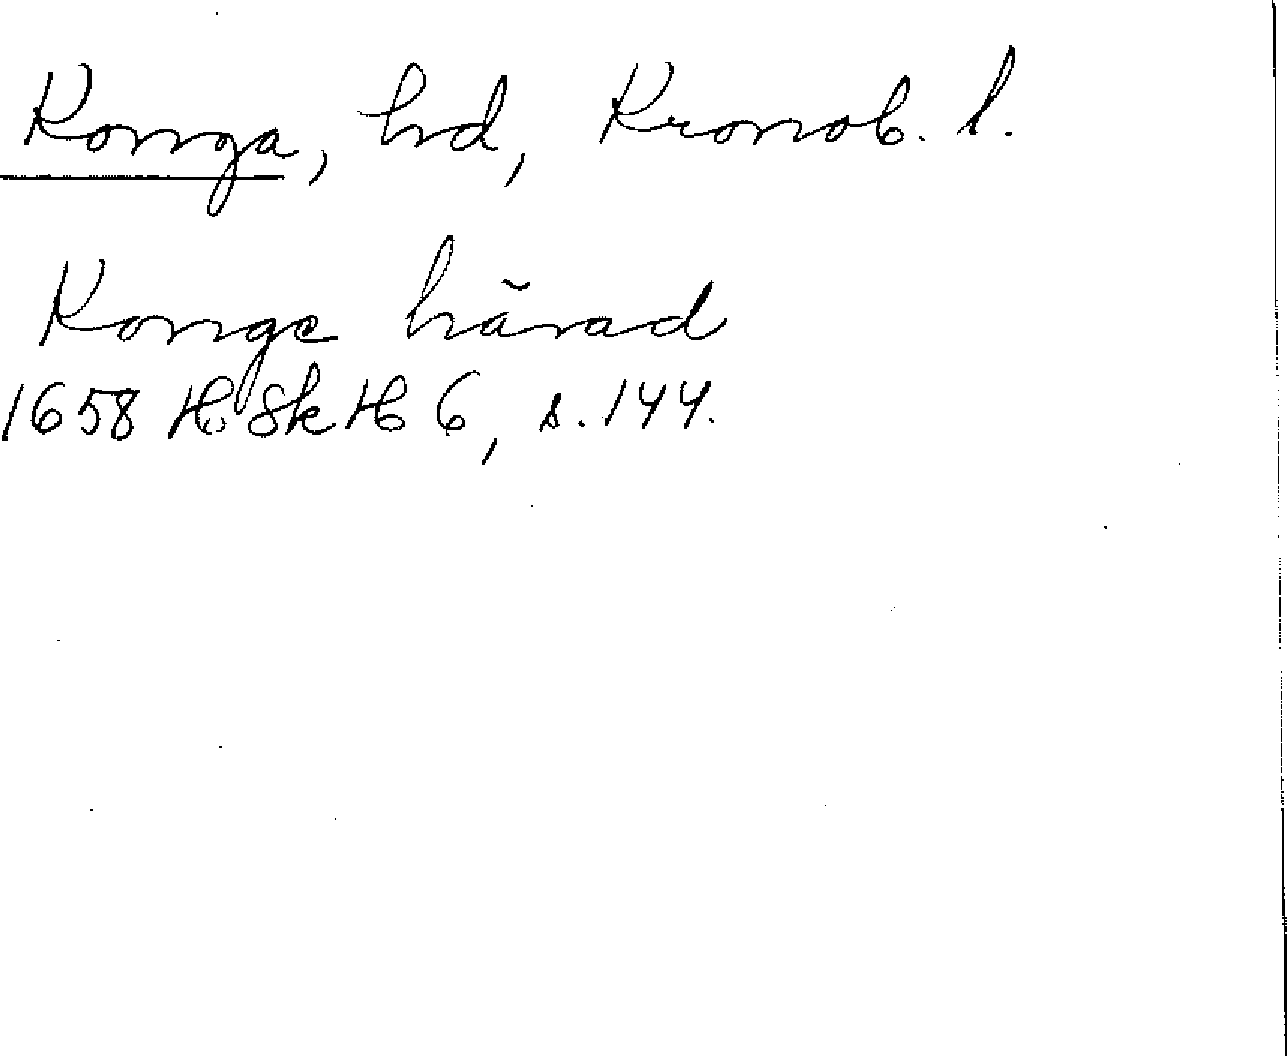 Konga, hd, Kronob. l.
Konge härad
1658 HSkH 6, s. 144.